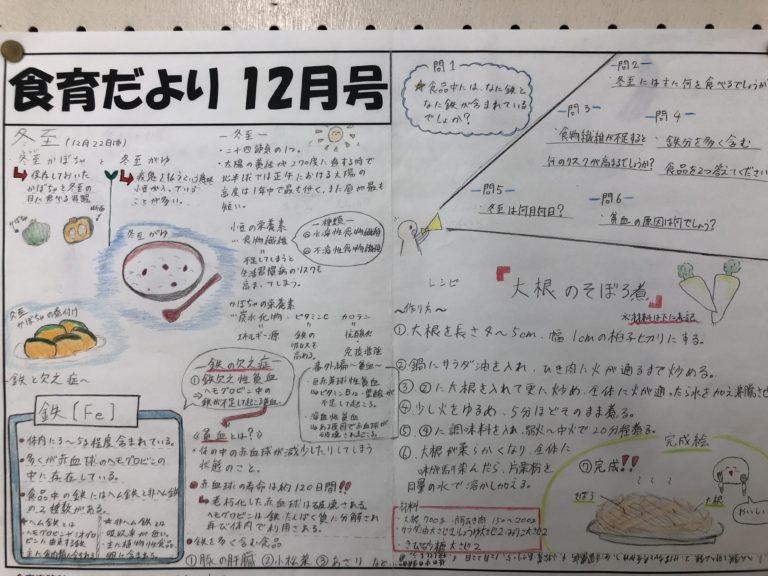 食育だより 12月号
冬至 (12月22日㊌)
冬至かぼちゃ と 冬至がゆ
保存しておいた
かぼちゃを冬至の
日に食べる習慣
小豆が入っている
ことが多い。
かぼちゃ
断面
冬至がゆ
冬至
かぼちゃの煮付け
〜鉄と欠乏症〜
鉄〔Fe〕
体内に3〜5g程度含まれている。
多くが赤血球のヘモグロビンの
中に存在している。
食品中の鉄にはヘム鉄と非ヘム鉄
の2種類がある。
★ヘム鉄とは
★非ヘム鉄とは
ー冬至ー
・二十四節気の1つ。
・太陽の黄経が270度に達する時で
北半球では正午における太陽の
高度は1年中で最も低く、また昼は最も
短い。
小豆の栄養素
…食物繊維
不足してしまうと
生活習慣病のリスクも
高まってしまう。
ー種類ー
水溶性食物繊維
不溶性食物繊維
かぼちゃの栄養素
…炭水化物
ビタミンC
カロテン
エネルギー源
鉄の
吸収を
高める。
抗酸化
免疫増強
ー鉄の欠乏症ー
①鉄欠乏性貧血
ヘモグロビン中の
鉄が不足して起こる貧血
番外編〜貧血〜
・巨赤芽球性貧血
ビタミンB₁₂・葉酸が
不足して起こる。
・溶血性貧血
赤血球が
破壊されて起こる。
《貧血とは?》
体の中の赤血球が減少したりしてしまう
状態のこと。
赤血球の寿命は約120日間!!
老朽化した赤血球は破壊される。
ヘモグロビンは鉄、たんぱく質に分解され
再び体内で利用される。
鉄を多く含む食品
①豚の肝臓 ②小松菜 ③あさり など…
問1
★食品中には、なに鉄と
なに鉄が含まれている
でしょうか?
ー問2ー
冬至にはまた何を食べるでしょうか
ー問3
食物繊維が不足すると
何のリスクが高まるでしょうか?
ー問4
鉄分を多く含む
食品を2つ答えてください
ー問5
冬至は何月何日?
ー問6
貧血の原因は何でしょう?
レシピ
『大根のそぼろ煮』
※材料は下に表記
〜作り方〜
①大根を長さ4〜5cm、幅1cmの拍子切りにする。
②鍋にサラダ油を入れ、ひき肉に火が通るまで炒める。
③②に大根を入れて更に炒め、全体に火が通ったら水を加え沸騰させ
④少し火をゆるめ、5分ほどそのまま煮る。
⑤④に調味料を入れ、弱火〜中火で20分程煮る。
⑥大根が柔らかくなり、全体に
味が馴染んだら、片栗粉を
同量の水で溶かし加える。
完成絵
⑦完成!!
そぼろ
大根
おいしい
材料
・大根 700g
150〜200g
大さじ2